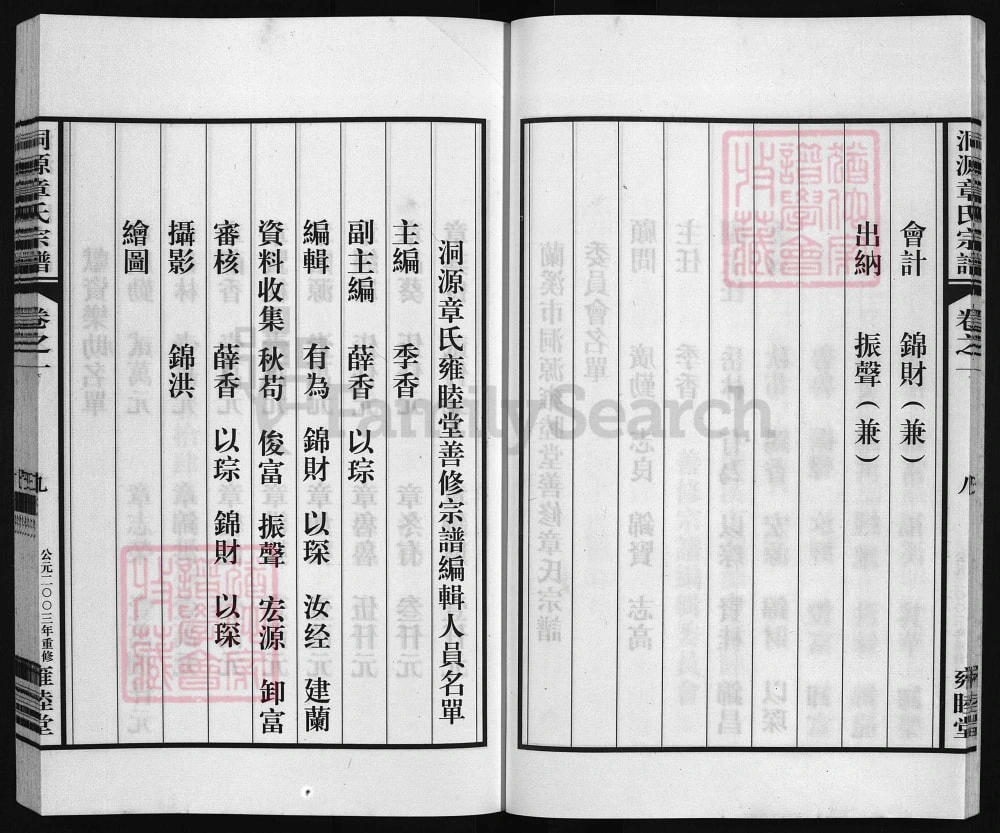 洞源章氏宗譜 卷之一 八 雍睦堂
會計 錦財(兼)
出納 振聲(兼)
洞源章氏雍睦堂善修宗譜編輯人員名單
主編 季香
副主編 薛香 以琮
編輯 有為 錦財 以琛 汝经 建蘭
資料收集 秋苟 俊富 振聲 宏源 卸富
審核 薛香 以琮 錦財 以琛
攝影 錦洪
繪圖
洞源章氏宗譜 卷之一 九 公元二〇〇三年重修 雍睦堂
猶他家譜學會特藏
猶他家譜學會特藏
FamilySearch